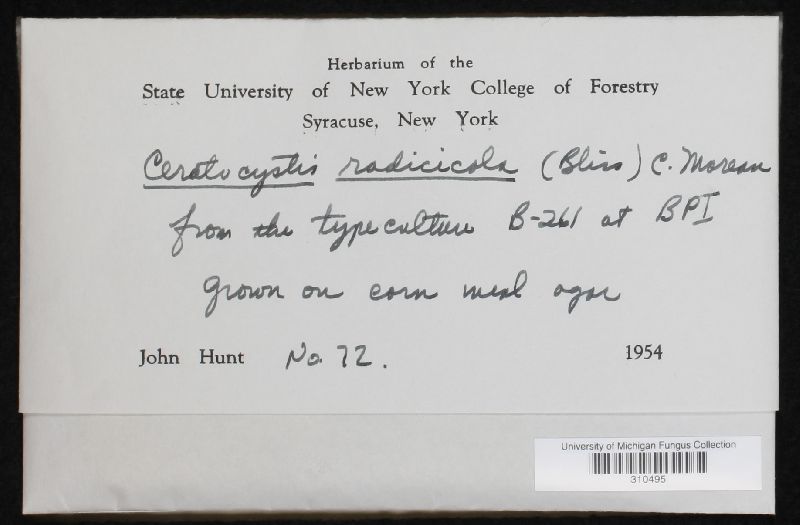 Herbarium of the
State University of New York College of Forestry
Syracuse, New York
Ceratocystis radicicola (Bliss) C. Moreau
from the type culture B-261 at BPI
grown on corn meal agar
John Hunt No. 72. 1954
University of Michigan Fungus Collection
310495